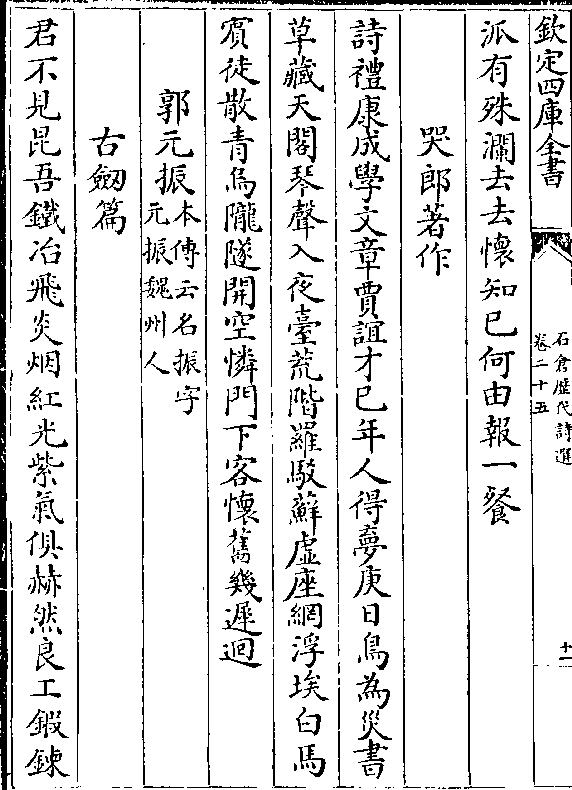 欽定四庫全書
石倉歷代詩選
卷二十五
十一
派有殊瀾去去懷知已何由報一餐
哭郎著作
詩禮康成學文章賈誼才已年人得夢庚日鳥為災書
草藏天閣琴聲入夜臺荒階羅駁蘚虛座網浮埃白馬
賓徒散青烏隴隧開空憐門下客懷舊幾遲迴
郭元振本傳云名振字
元振魏州人
古劒篇
君不見昆吾鐵冶飛炎烟紅光紫氣俱赫然良工鍛鍊